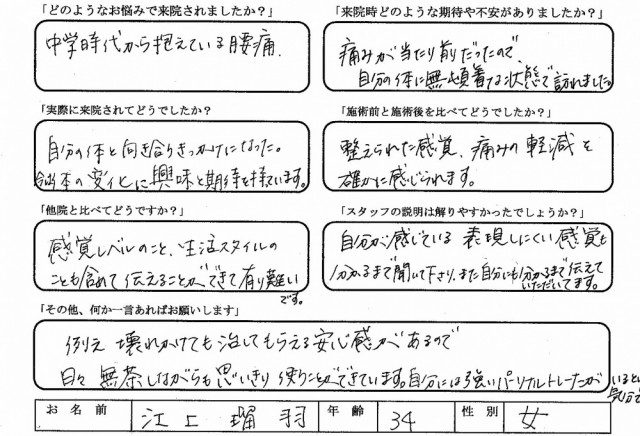 「どのようなお悩みで来院されましたか？」
中学時代から抱えている腰痛.
「来院時どのような期待や不安がありましたか？」
痛みが当たり前だったので、
自分の体に無頓着な状態で訪れました。
「実際に来院されてどうでしたか？」
自分の体と向き合うきっかけになった。
体の変化に興味と期待を持ています。
「施術前と施術後を比べてどうでしたか？」
整えられた感覚、痛みの軽減を
確かに感じられます。
「他院と比べてどうですか？」
感覚レベルのこと、生活スタイルの
ことも含めて伝えることができて有り難い
です。
「スタッフの説明は解りやすかったでしょうか？」
自分が感じている表現しにくい感覚も
分かるまで聞いて下さり、また自分にも分かるまで伝えて
いただいてます。
「その他、何か一言あればお願いします」
例え 壊れかけても治してもらえる安心感があるので
日々 無茶しながらも思いきり使うことができています。自分には強いパーソナルトレーナーが
いるとい
気分で
お名前 江上 瑠羽 年齢 34 性別 女